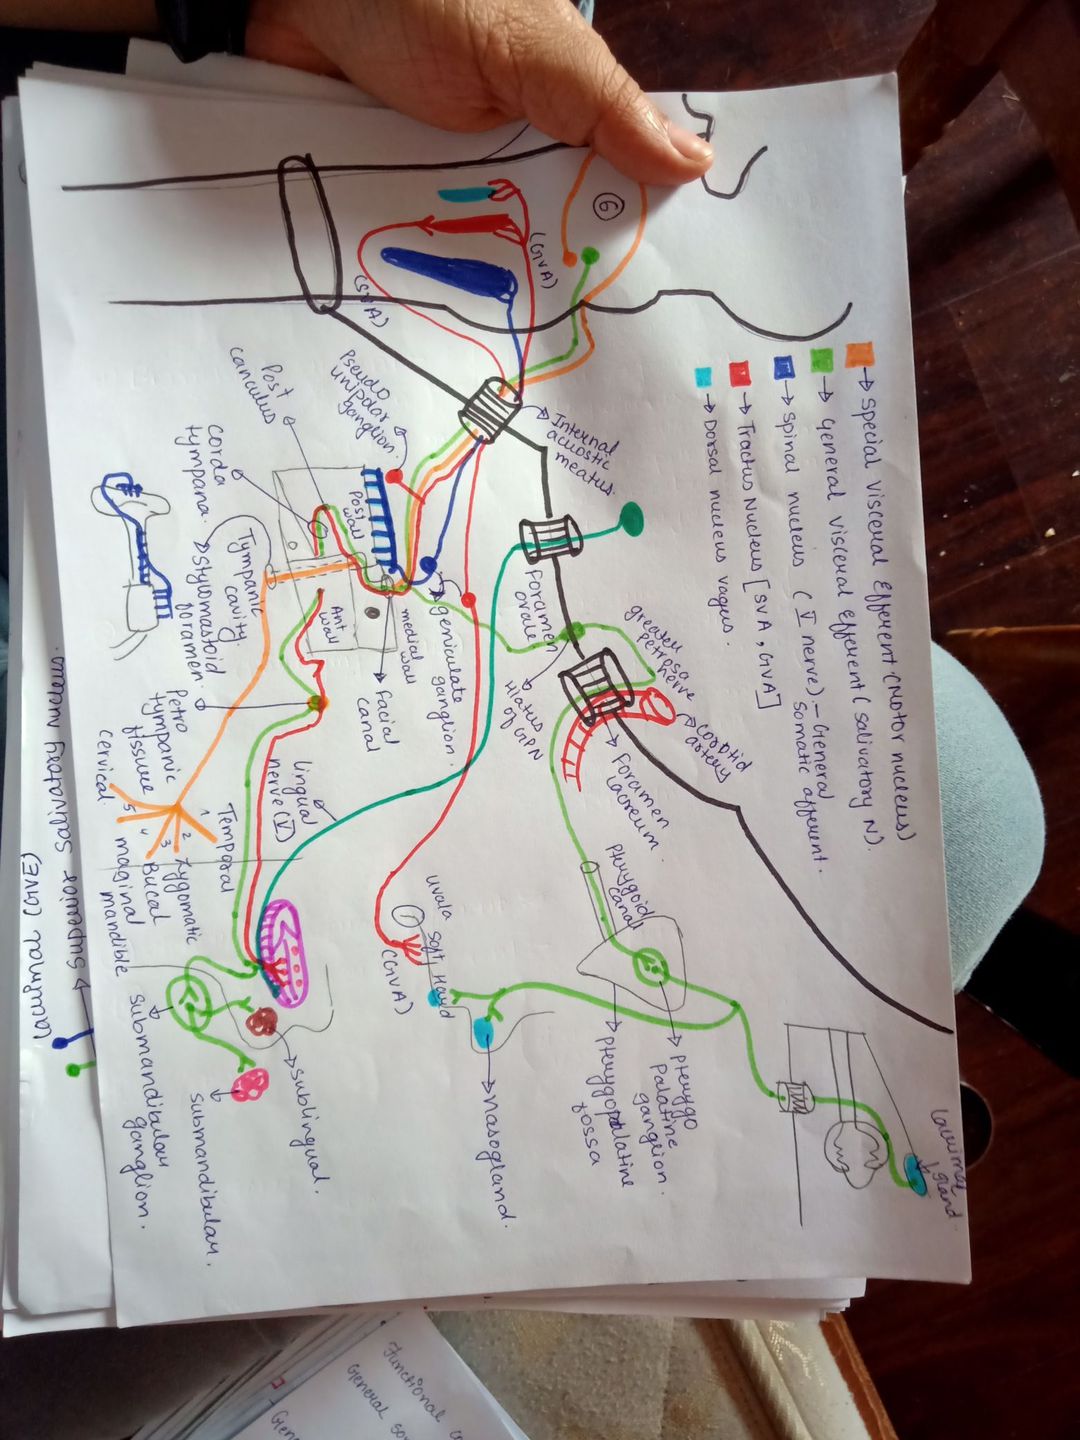 → special visceral Efferent (Motor nucleus)
→ General visceral efferent (salivatory N).
→ spinal nucleus (V nerve) – General
somatic afferent.
→ Tractus Nucleus [SVA, GVA]
→ Dorsal nucleus vagus.
6
(GVA)
(SVA)
Internal
acuostic
meatus.
Pseudo
unipolar
ganglion.
Post
canculus
corda
tympana.
Post
wall
Foramen
ovale
greater
petrosa
nerve
corotid
artery
Hiatus
of GPN
geniculate
ganglion.
medial
wall
Facial
canal
Ant
wall
Tympanic
cavity.
Stylomastoid
foramen.
Foramen
lacreum.
Petro
tympanic
fissure
lingual
nerve (V)
Pterygoid
canal
1
2
3
4
5
Temporal
Zygomatic
Bucal
maginal
mandible
cervical.
uvala
soft
Hard
(GVA)
Pterygo
Palatine
ganglion.
Pterygopalatine
fossa
nasogland.
sublingual.
submandibular.
submandibular
ganglion.
gland.
(GVE)
→ superior salivatory nucleus.
Functional
General